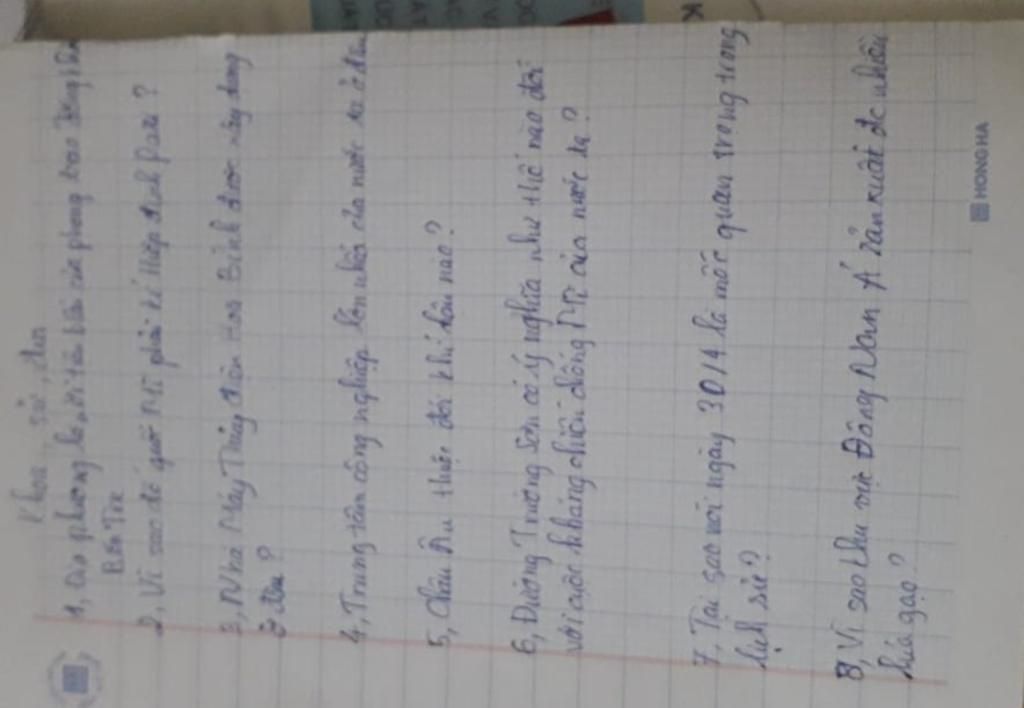 Khoa, sử, địa
1, Địa phương là tiêu biểu của phong trào Đồng khởi
Bến Tre
2, Vì sao đế quốc Mĩ phải kí Hiệp định Pari?
3, Nhà Máy Thủy điện Hoà Bình được xây dựng
ở đâu?
4, Trung tâm công nghiệp lớn nhất của nước ta ở đâu
5, Châu Âu thuộc đới khí hậu nào?
6, Đường Trường Sơn có ý nghĩa như thế nào đối
với cuộc kháng chiến chống Mĩ của nước ta?
7, Tại sao nói ngày 30/4 là mốc quan trọng trong
lịch sử?
8, Vì sao khu vực Đông Nam Á sản xuất đc nhiều
lúa gạo?
HONG HA